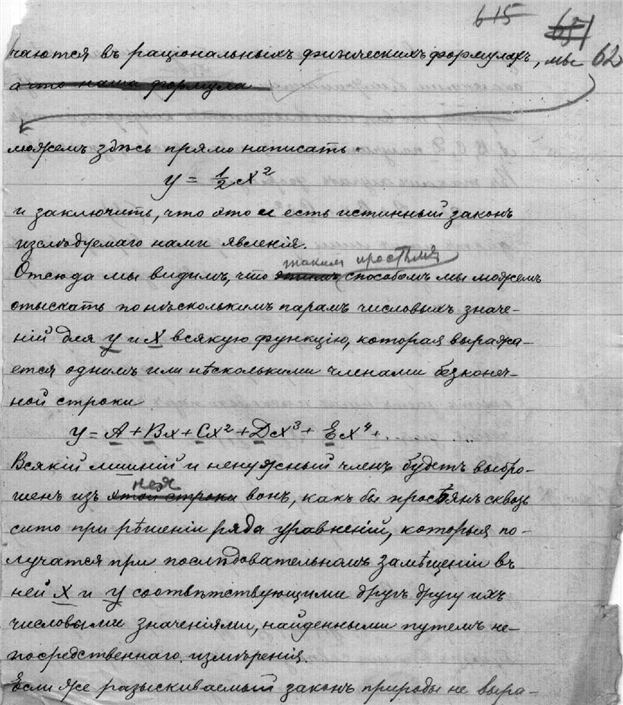 615 651
чаются въ раціональныхъ физическихъ формулахъ, мы 62
а что наша формула
можемъ здѣсь прямо написать.
y = 1/2 x²
и заключить, что это и есть истинный законъ
изслѣдуемаго нами явленія.
такимъ простымъ
Отсюда мы видимъ, что этимъ способомъ мы можемъ
отыскать по нѣсколькимъ парамъ числовыхъ значе-
ній для y и x всякую функцію, которая выража-
ется однимъ или нѣсколькими членами безконеч-
ной строки
y = A + Bx + Cx² + Dx³ + Ex⁴ + ...
Всякій лишній и ненужный членъ будетъ выбро-
нея
шенъ изъ этой строки вонъ, какъ бы просѣянъ сквозь
сито при рѣшеніи ряда уравненій, которыя по-
лучатся при послѣдовательномъ замѣщеніи въ
ней x и y соотвѣтствующими другъ другу ихъ
числовыми значеніями, найденными путемъ не-
посредственнаго измѣренія.
Если же разыскиваемый законъ природы не выра-